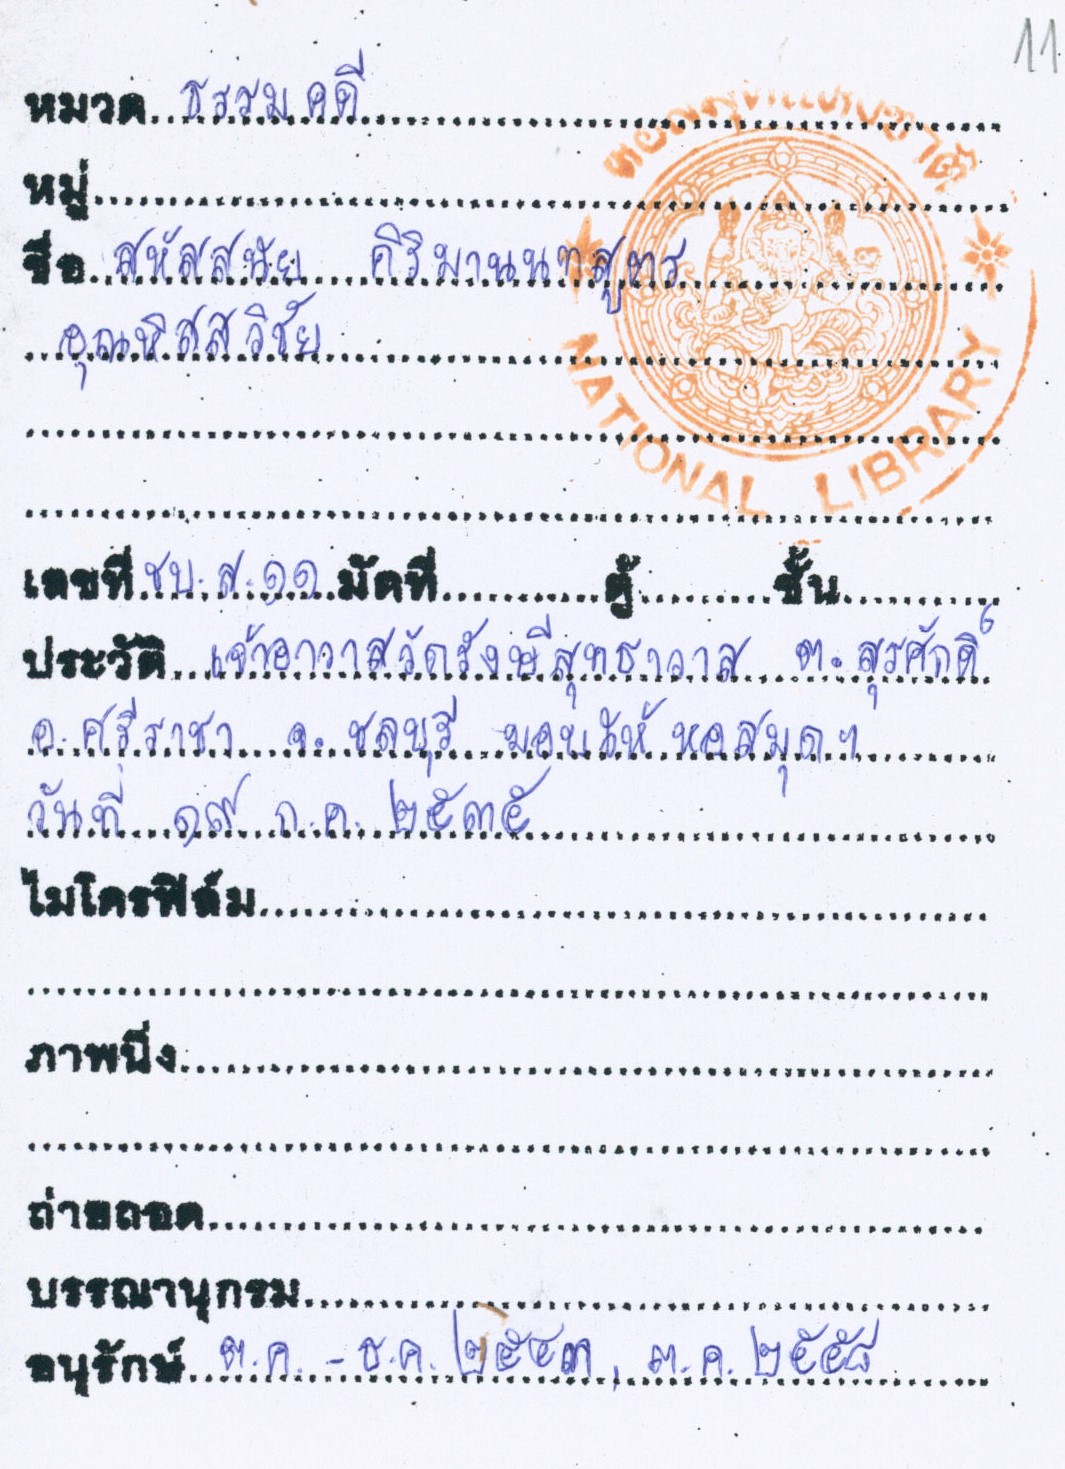 11
หมวด ธรรมคดี
หอสมุดแห่งชาติ
หมู่
ชื่อ สหัสสนัย คิริมานนทสูตร
อุณหิสสวิชัย
NATIONAL LIBRARY
เลขที่ ชบ.ส.๑๑ มัดที่ ตู้ ชั้น
ประวัติ เจ้าอาวาสวัดรังษีสุทธาวาส ต.สุรศักดิ์
อ.ศรีราชา จ.ชลบุรี มอบให้หอสมุดฯ
วันที่ ๑๙ ก.ค. ๒๕๓๕
ไมโครฟิล์ม
ภาพนิ่ง
ถ่ายถอด
บรรณานุกรม
อนุรักษ์ ต.ค. - ธ.ค. ๒๕๔๓, ต.ค. ๒๕๕๘